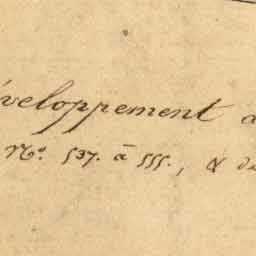 éveloppement d
N.º 537. à 555., & de